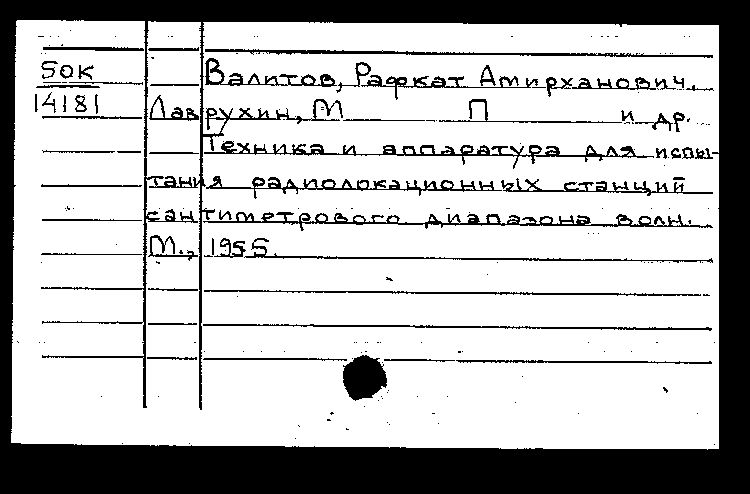 50K
14181
Валитов, Рафкат Амирханович.
Лаврухин, М П и др.
Техника и аппаратура для испы-
тания радиолокационных станций
сантиметрового диапазона волн.
М., 1955.